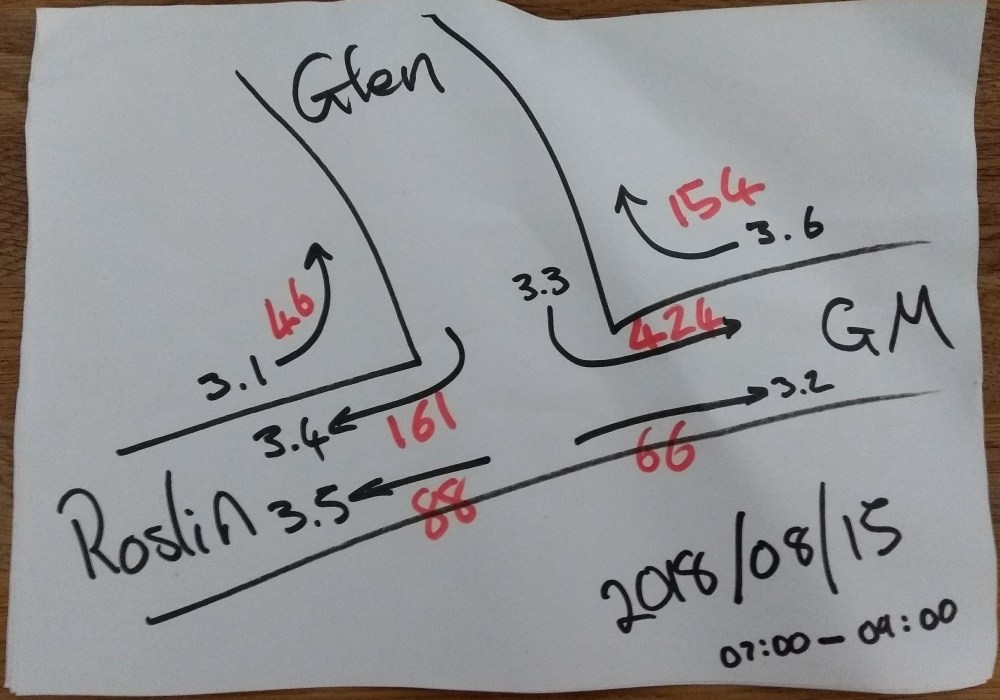 Glen
154
3.6
3.3
46
424
GM
3.1
3.2
3.4
161
66
Roslin
3.5
88
2018/08/15
07:00 - 09:00